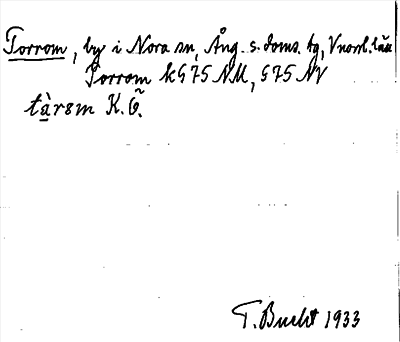 Torrom, by i Nora sn, Ång. s. doms. tg, Vnorrl. län
Torrom kG75 NM, G75 NV
tàrsm K.G.
T. Bucht 1933